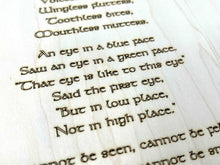 Wingless flutters,
Toothless bites,
Mouthless mutters.
An eye in a blue face
Saw an eye in a green face.
"That eye is like to this eye"
Said the first eye,
"But in low place,
Not in high place."
cannot be seen, cannot be